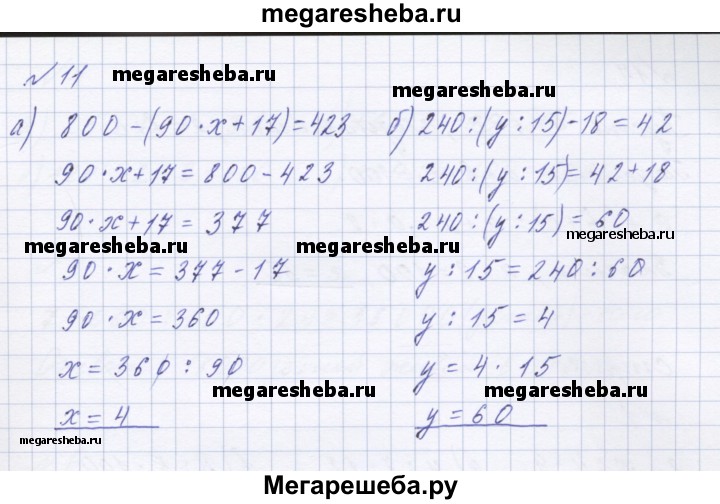 megaresheba.ru
№ 11
megaresheba.ru
а) 800 - (90 · x + 17) = 423
90 · x + 17 = 800 - 423
90 · x + 17 = 377
megaresheba.ru
90 · x = 377 - 17
90 · x = 360
x = 360 : 90
x = 4
megaresheba.ru
б) 240 : (y : 15) - 18 = 42
240 : (y : 15) = 42 + 18
240 : (y : 15) = 60
megaresheba.ru
y : 15 = 240 : 60
y : 15 = 4
y = 4 · 15
megaresheba.ru
y = 60
megaresheba.ru
Мегарешеба.ру